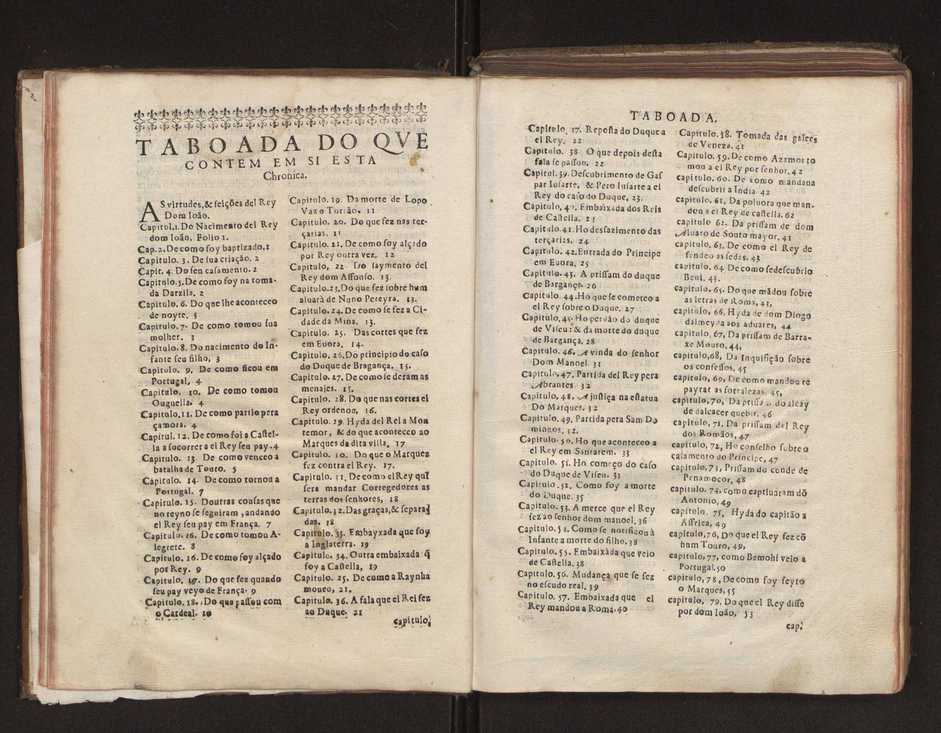 TABOADA DO QVE
CONTEM EM SI ESTA
Chronica.
AS virtudes, & feições del Rey
Dom Ioão.
Capitol.1. Do Nacimento del Rey
dom Ioão. Folio 1.
Cap.2. De como foy baptizado.1
Capitulo. 3. De sua criação. 2
Capit. 4. Do seu casamento. 2
Capitulo.5. De como foy na toma-
da Darzila. 2
Capitulo. 6. Do que lhe aconteceo
de noyte. 5
Capitulo. 7. De como tomou sua
molher. 3
Capitulo. 8. Do nacimento do In-
fante seu filho, 3
Capitulo. 9. De como ficou em
Portugal, 4
Capitulo. 10. De como tomou
Ouguella. 4
Capitulo, 11. De como partio pera
çamora. 4
Capitul. 12. De como foi a Castel-
la a socorrer a el Rey seu pay. 4
Capitulo. 13. De como venceo a
batalha de Touro. 5
Capitulo. 14. De como tornou a
Portugal. 7
Capitulo. 15. Doutras cousas que
no reyno se seguiram, andando
el Rey seu pay em França. 7
Capitulo. 16. De como tomou A-
legrete. 8
Capitulo. 16. De como foy alçado
por Rey. 9
Capitulo, 17. Do que fez quando
seu pay veyo de França. 9
Capitulo, 18. Do que passou com
o Cardeal. 10
Capitulo. 19. Da morte de Lopo
Vaz o Torrão, 11
Capitulo. 20. Do que fez nas ter-
çarias. 11
Capitulo. 21. De como foy alçido
por Rey outra vez. 12
Capitulo, 22 Sto saymento del
Rey dom Affonso. 13.
Capitulo. 23, Do que fez sobre hum
aluarà de Nuno Pereyra. 13.
Capitulo. 24. De como se fez a Ci-
dade da Mina. 13.
Capitulo. 25. Das cortes que fez
em Euora, 14.
Capitulo. 26, Do principio do caso
do Duque de Bragança. 15.
Capitulo. 27. De como se deram as
menajes. 15.
Capitulo. 28. Do que nas cortes el
Rey ordenou, 16.
Capitulo. 29 Hyda del Rei a Mon
temor, & do que aconteceo ao
Marques da dita villa, 17
Capitulo. 30. Do que o Marques
fez contra el Rey. 17.
Capitulo. 31, De como el Rey quis
sera mandar Corregedores as
terras dos senhores, 18
Capitulo, 32. Das graças, & separa
das. 18
Capitulo, 33. Embayxada que foy
a Inglaterra. 19
Capitulo. 34. Outra embaixada q̃
foy a Castella, 19
Capitulo. 25. De como a Raynha
moueo, 21,
Capitulo. 36. A fala que el Rei fez
ao Duque. 21
capitulo,
TABOADA.
Capitulo, 37. Reposta do Duque a
el Rey. 22
Capitulo. 38 O que depois desta
fala se passou. 22
Capitol. 39. Descubrimento de Gas
par Iusarte, & Pero Iusarte a el
Rey do caso do Duque, 23.
Capitulo, 40. Embaixada dos Reis
de Castella. 23
Capitulo 41. Ho desfazimento das
terçarias. 24
Capitulo. 42. Entrada do Principe
em Euora, 25
Capitulo. 43. A prissam do duque
de Bargança. 26
Capitulo. 44. Ho que se cometeo a
el Rey sobre o Duque. 27
Capitulo, 45. Ho perdão do duque
de Viseu: & da morte do duque
de Bargança. 28
Capitulo. 46. A vinda do senhor
Dom Manoel. 31
Capitulo, 47. Partida del Rey pera
Abrantes 32
Capitulo, 48. A justiça na estatua
Do Marques. 32
Capitulo, 49. Partida pera Sam Do
mingos, 32.
Capitulo. 50. Ho que aconteceo a
el Rey em Santarem. 33
Capitulo. 51. Ho começo do caso
do Duque de Viseu. 33
Capitulo. 52, Como foy a morte
do Duque. 35
Capitulo. 53. A merce que el Rey
fez ao senhor dom manoel. 36
Capitulo. 54. Como se notificou à
Infante a morte do filho. 38
Capitulo. 55. Embaixada que veio
de Castella. 38
Capitulo. 56. Mudança que se fez
no escudo real. 39
Capitulo. 57. Embaixada que el
Rey mandou a Roma. 40
Capitulo. 38. Tomada das galees
de Veneza. 41
Capitulo. 59. De como Azamor to
mou a el Rey por senhor. 42
capitulo. 60. De como mandaua
descubrir a India 42
capitulo. 61, Da poluora que man-
dou a el Rey de castella. 62
capitulo 62. Da prissam de dom
Aluaro de Souto mayor, 41
capitulo, 63. De como el Rey de
fendeo as sedas. 43
capitulo. 64 De como se descubrio
Beni. 43.
capitulo. 65. Do que mãdou sobre
as letras de Roma, 43,
capitulo, 66, Hyda de dom Diogo
dalmeyda aos aduares, 44
capitulo, 67, Da prissam de Barra-
xe Mouro, 44.
capitulo, 68, Da Inquisição sobre
os confessos, 45
capitulo, 69, De como mandou re
payrar as fortalezas. 45,
capitulo, 70, Da prissão do alcay
de dalcacer quebir. 46
capitulo, 71. Da prissam del Rey
dos Romãos, 47
capitulo, 72, Ho conselho sobre o
casamento do Principe, 47
capitulo, 73, Prissam do conde de
Penamocor, 48
capitulo. 74. como captiuaram dõ
Antonio, 49
capitulo, 75, Hyda do capitão a
Affrica, 49
capitulo, 76, Do que el Rey fez cõ
hum Touro, 49,
capitulo, 77, como Bemohi veio a
Portugal. 50
capitulo, 78, De como foy feyto
o Marques, 45
capitulo, 79. Do que el Rey disse
por dom Ioão, 53
cap.